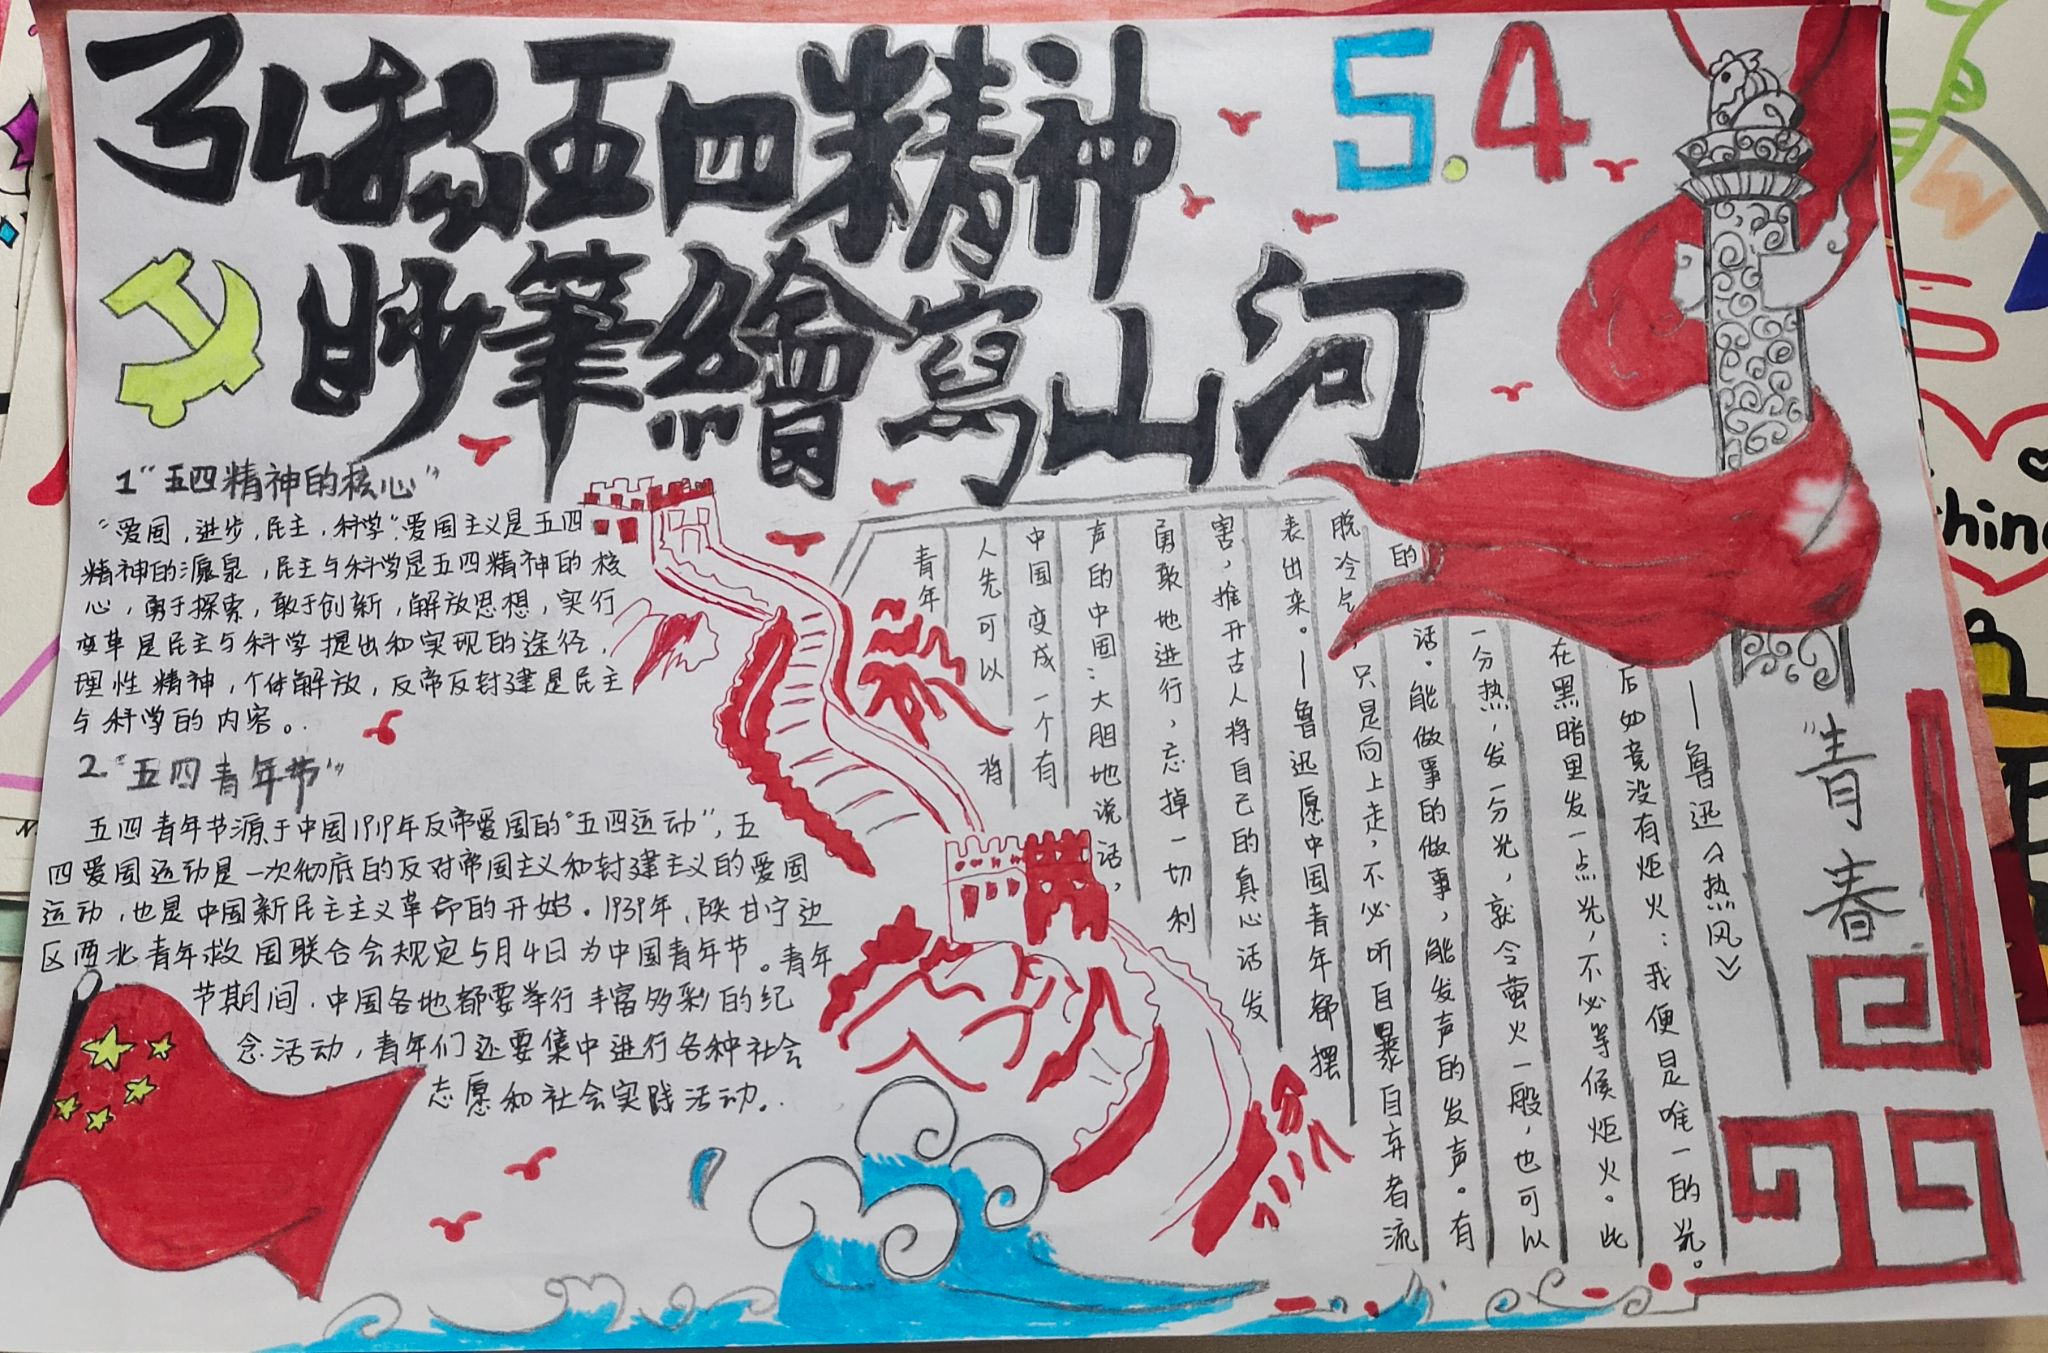 弘扬五四精神
5.4
妙筆繪寫山河
1“五四精神的核心”
“爱国,进步,民主,科学”.爱国主义是五四
精神的源泉,民主与科学是五四精神的核
心,勇于探索,敢于创新,解放思想,实行
变革是民主与科学提出和实现的途径,
理性精神,个体解放,反帝反封建是民主
与科学的内容。
2.“五四青年节”
五四青年节源于中国1919年反帝爱国的“五四运动”,五
四爱国运动是一次彻底的反对帝国主义和封建主义的爱国
运动,也是中国新民主主义革命的开始。1939年,陕甘宁边
区西北青年救国联合会规定5月4日为中国青年节。青年
节期间,中国各地都要举行丰富多彩的纪
念活动,青年们还要集中进行各种社会
志愿和社会实践活动。
青年
人先可以将
中国变成一个有
声的中国:大胆地说话,
勇敢地进行,忘掉一切利
害,推开古人将自己的真心话发
表出来。—鲁迅愿中国青年都摆
脱冷气,只是向上走,不必听自暴自弃者流
的话。能做事的做事,能发声的发声。有
一分热,发一分光,就令萤火一般,也可以
在黑暗里发一点光,不必等候炬火。此
后如竟没有炬火:我便是唯一的光。
—鲁迅《热风》
“青春
hina